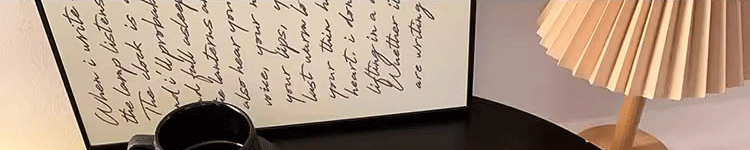 When i write
the lamp listens
The clock is a
nd i'll probabl
d fall asleep
e lanterns a
also hear you
voice, your n
your lips, y
last warm lo
your thin h
heart. i don
lifting in a
Whether it
are writing